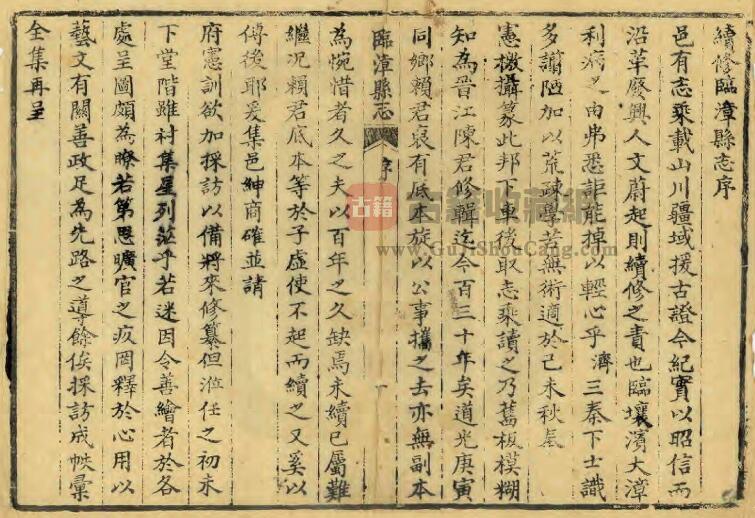 續修臨漳縣志序
邑有志乘載山川疆域援古證今紀實以昭信而
沿革廢興人文蔚起則續修之責也臨壤濱大漳
利病之由弗悉詎能掉以輕心乎濟三秦下士識
多謭陋加以荒疎學若無術適於己未秋
憲檄攝篆此邦下車後取志乘讀之乃舊板模糊
知為晉江陳君修輯迄今百三十年矣道光庚寅
同鄉賴君裒有底本旋以公事攜之去亦無副本
臨漳縣志
序
為惋惜者久之夫以百年之久缺焉未續已屬難
繼况賴君底本等於子虛使不起而續之又奚以
傳後耶爰集邑紳商確並請
府憲訓欲加採訪以備將來修纂但涖任之初未
下堂階雖村集星列茫乎若迷因令善繪者於各
處呈圖頗為瞭若第思曠官之疚罔釋於心用以
藝文有關善政足為先路之導餘俟採訪成帙彙
全集再呈
古籍收藏網
www.GuJiShouCang.com